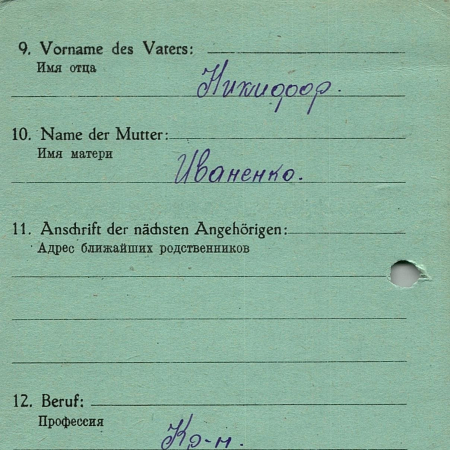 9. Vorname des Vaters:
Имя отца
Никифор.
10. Name der Mutter:
Имя матери
Иваненко.
11. Anschrift der nächsten Angehörigen:
Адрес ближайших родственников
12. Beruf:
Профессия
Кр-н.